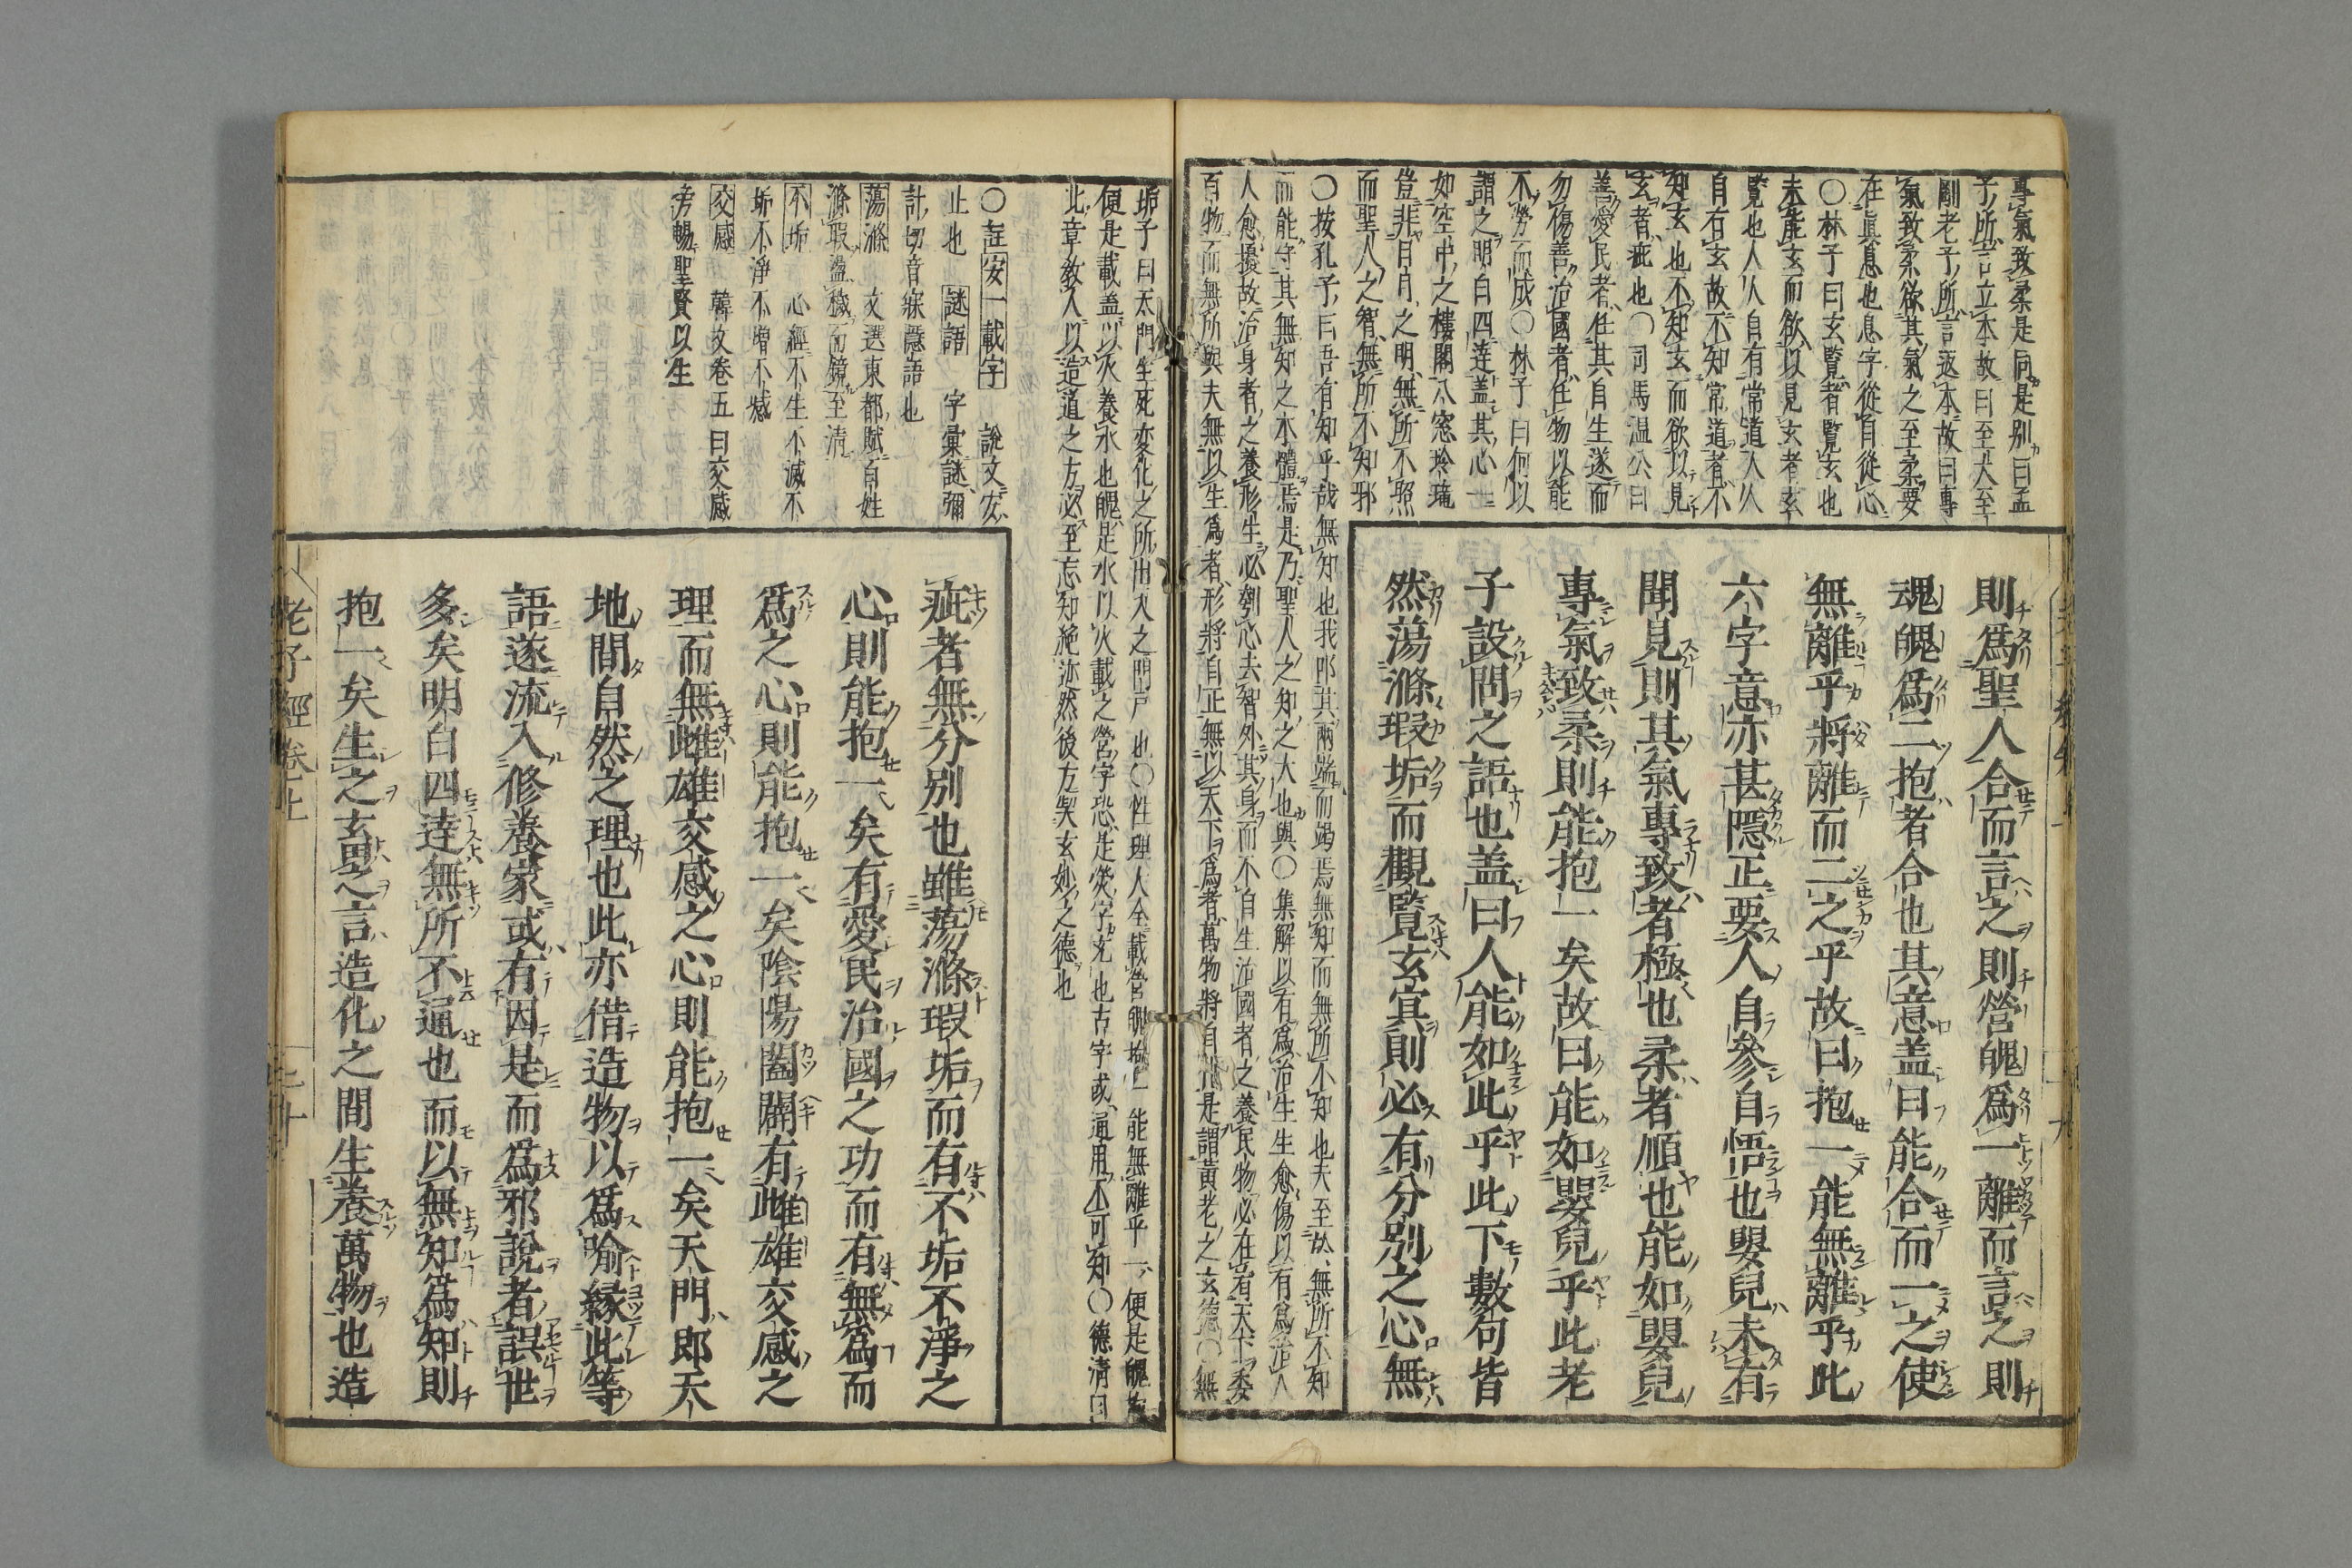 專氣致柔是同是別曰孟
子所言立本故曰至大至
剛老子所言返本故曰專
氣致柔欲其氣之至柔要
在眞息也息字從自從心
○林子曰玄覽者覽玄也
未能玄而欲以見玄者玄
覽也人人自有常道人人
自有玄故不知常道者不
知玄也不知玄而欲以見
玄者疵也○司馬温公曰
善愛民者任其自生遂而
勿傷善治國者任物以能
不勞而成○林子曰何以
謂之明白四達盖其心一
如空中之樓閣八窓玲瓏
豈非日月之明無所不照
而聖人之智無所不知邪
○按孔子曰吾有知乎哉無知也我叩其兩端而竭焉無知而無所不知也夫至於無所不知
而能守其無知之本體焉是乃聖人之知之大也與○集解以有爲治生生愈傷以有爲治人
人愈擾故治身者之養形生必剗心去智外其身而不自生治國者之養民物必在宥天下委
百物而無所與夫無以生爲者形將自正無以天下爲者萬物將自化是謂黃老之玄德○無
則爲聖人合而言之則營魄爲一離而言之則
魂魄爲二抱者合也其意盖曰能合而一之使
無離乎將離而二之乎故曰抱一能無離乎此
六字意亦甚隱正要人自參自悟也嬰兒未有
聞見則其氣專致者極也柔者順也能如嬰兒
專氣致柔則能抱一矣故曰能如嬰兒乎此老
子設問之語也盖曰人能如此乎此下數句皆
然蕩滌瑕垢而觀覽玄冥則必有分別之心無
垢子曰天門生死変化之所出入之門戸也○性理人全載營魄抱一能無離乎一便是魄抱
便是載盖以火養水也魄是水以火載之營字恐是熒字光也古字或通用不可知○德清曰
此章教人以造道之方必至忘知絶迹然後方契玄妙之德也
○註安一載字 說文安
止也 謎語 字彙謎彌
計切音寐隱語也
蕩滌 文選東都賦百姓
滌瑕盪穢而鏡至清
不垢 心經不生不滅不
垢不淨不增不減
交感 韓文卷五曰交感
旁暢聖賢以生
疵者無分別也雖蕩滌瑕垢而有不垢不淨之
心則能抱一矣有愛民治國之功而有無爲而
爲之心則能抱一矣陰陽闔闢有雌雄交感之
理而無雌雄交感之心則能抱一矣天門即天
地間自然之理也此亦借造物以爲喩緣此等
語遂流入修養家或有因是而爲邪說者誤世
多矣明白四達無所不通也而以無知爲知則
抱一矣生之畜之言造化之間生養萬物也造
老子經卷上
二十